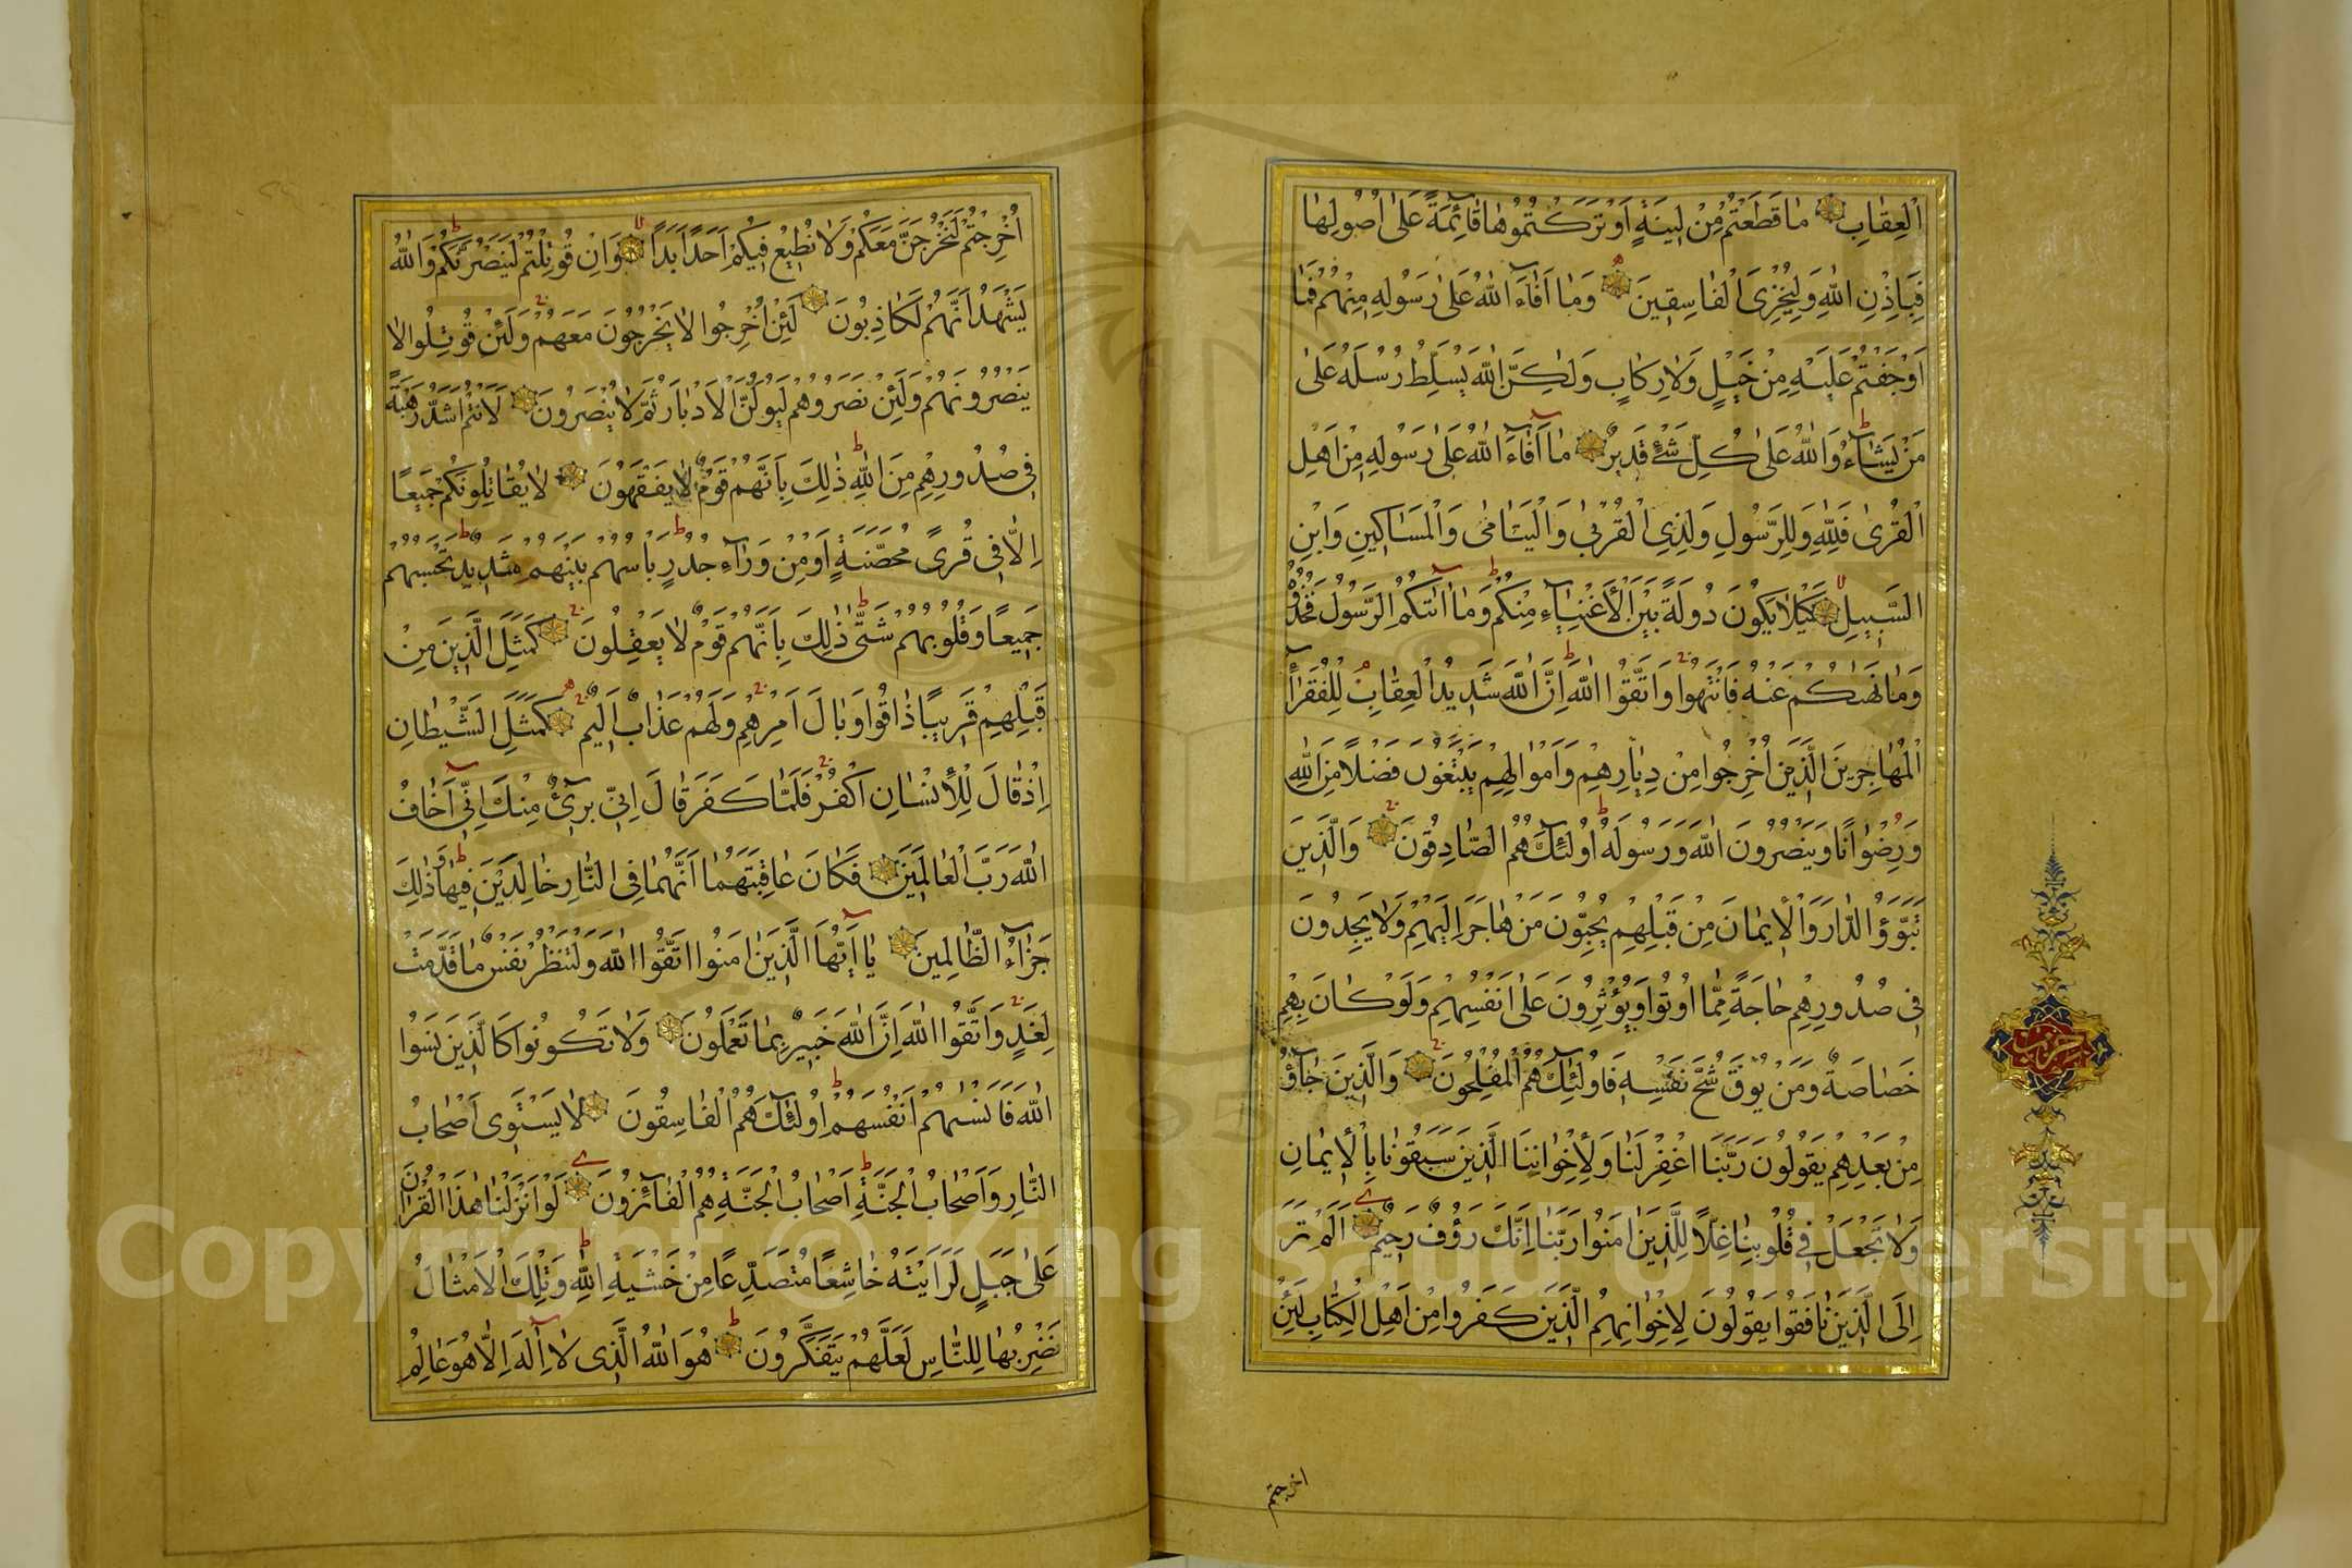 اَلْعِقَابِ مَا قَطَعْتُمْ مِنْ لِينَةٍ اَوْ تَرَكْتُمُوهَا قَآئِمَةً عَلٰى اُصُولِهَا
فَبِاِذْنِ اللّٰهِ وَلِيُخْزِيَ الْفَاسِقِينَ وَمَا اَفَآءَ اللّٰهُ عَلٰى رَسُولِهِ مِنْهُمْ فَمَا
اَوْجَفْتُمْ عَلَيْهِ مِنْ خَيْلٍ وَلَا رِكَابٍ وَلٰكِنَّ اللّٰهَ يُسَلِّطُ رُسُلَهُ عَلٰى
مَنْ يَشَآءُ وَاللّٰهُ عَلٰى كُلِّ شَيْءٍ قَدِيرٌ مَا اَفَآءَ اللّٰهُ عَلٰى رَسُولِهِ مِنْ اَهْلِ
الْقُرٰى فَلِلّٰهِ وَلِلرَّسُولِ وَلِذِي الْقُرْبٰى وَالْيَتَامٰى وَالْمَسَاكِينِ وَابْنِ
السَّبِيلِ كَيْلَا يَكُونَ دُولَةً بَيْنَ الْاَغْنِيَآءِ مِنْكُمْ وَمَا اٰتٰيكُمُ الرَّسُولُ فَخُذُوهُ
وَمَا نَهٰيكُمْ عَنْهُ فَانْتَهُوا وَاتَّقُوا اللّٰهَ اِنَّ اللّٰهَ شَدِيدُ الْعِقَابِ لِلْفُقَرَآءِ
الْمُهَاجِرِينَ الَّذِينَ اُخْرِجُوا مِنْ دِيَارِهِمْ وَاَمْوَالِهِمْ يَبْتَغُونَ فَضْلًا مِنَ اللّٰهِ
وَرِضْوَانًا وَيَنْصُرُونَ اللّٰهَ وَرَسُولَهُ اُولٰٓئِكَ هُمُ الصَّادِقُونَ وَالَّذِينَ
تَبَوَّؤُ الدَّارَ وَالْاِيمَانَ مِنْ قَبْلِهِمْ يُحِبُّونَ مَنْ هَاجَرَ اِلَيْهِمْ وَلَا يَجِدُونَ
فِي صُدُورِهِمْ حَاجَةً مِمَّا اُوتُوا وَيُؤْثِرُونَ عَلٰى اَنْفُسِهِمْ وَلَوْ كَانَ بِهِمْ
خَصَاصَةٌ وَمَنْ يُوقَ شُحَّ نَفْسِهِ فَاُولٰٓئِكَ هُمُ الْمُفْلِحُونَ وَالَّذِينَ جَآؤُ
مِنْ بَعْدِهِمْ يَقُولُونَ رَبَّنَا اغْفِرْ لَنَا وَلِاِخْوَانِنَا الَّذِينَ سَبَقُونَا بِالْاِيمَانِ
وَلَا تَجْعَلْ فِي قُلُوبِنَا غِلًّا لِلَّذِينَ اٰمَنُوا رَبَّنَا اِنَّكَ رَؤُفٌ رَحِيمٌ اَلَمْ تَرَ
اِلَى الَّذِينَ نَافَقُوا يَقُولُونَ لِاِخْوَانِهِمُ الَّذِينَ كَفَرُوا مِنْ اَهْلِ الْكِتَابِ لَئِنْ
اخرجتم
حزب
اُخْرِجْتُمْ لَنَخْرُجَنَّ مَعَكُمْ وَلَا نُطِيعُ فِيكُمْ اَحَدًا اَبَدًا وَاِنْ قُوتِلْتُمْ لَنَنْصُرَنَّكُمْ وَاللّٰهُ
يَشْهَدُ اَنَّهُمْ لَكَاذِبُونَ لَئِنْ اُخْرِجُوا لَا يَخْرُجُونَ مَعَهُمْ وَلَئِنْ قُوتِلُوا لَا
يَنْصُرُونَهُمْ وَلَئِنْ نَصَرُوهُمْ لَيُوَلُّنَّ الْاَدْبَارَ ثُمَّ لَا يُنْصَرُونَ لَاَنْتُمْ اَشَدُّ رَهْبَةً
فِي صُدُورِهِمْ مِنَ اللّٰهِ ذٰلِكَ بِاَنَّهُمْ قَوْمٌ لَا يَفْقَهُونَ لَا يُقَاتِلُونَكُمْ جَمِيعًا
اِلَّا فِي قُرًى مُحَصَّنَةٍ اَوْ مِنْ وَرَآءِ جُدُرٍ بَأْسُهُمْ بَيْنَهُمْ شَدِيدٌ تَحْسَبُهُمْ
جَمِيعًا وَقُلُوبُهُمْ شَتّٰى ذٰلِكَ بِاَنَّهُمْ قَوْمٌ لَا يَعْقِلُونَ كَمَثَلِ الَّذِينَ مِنْ
قَبْلِهِمْ قَرِيبًا ذَاقُوا وَبَالَ اَمْرِهِمْ وَلَهُمْ عَذَابٌ اَلِيمٌ كَمَثَلِ الشَّيْطَانِ
اِذْ قَالَ لِلْاِنْسَانِ اكْفُرْ فَلَمَّا كَفَرَ قَالَ اِنِّي بَرِيٓءٌ مِنْكَ اِنِّي اَخَافُ
اللّٰهَ رَبَّ الْعَالَمِينَ فَكَانَ عَاقِبَتَهُمَا اَنَّهُمَا فِي النَّارِ خَالِدَيْنِ فِيهَا وَذٰلِكَ
جَزَآءُ الظَّالِمِينَ يَا اَيُّهَا الَّذِينَ اٰمَنُوا اتَّقُوا اللّٰهَ وَلْتَنْظُرْ نَفْسٌ مَا قَدَّمَتْ
لِغَدٍ وَاتَّقُوا اللّٰهَ اِنَّ اللّٰهَ خَبِيرٌ بِمَا تَعْمَلُونَ وَلَا تَكُونُوا كَالَّذِينَ نَسُوا
اللّٰهَ فَاَنْسٰيهُمْ اَنْفُسَهُمْ اُولٰٓئِكَ هُمُ الْفَاسِقُونَ لَا يَسْتَوِي اَصْحَابُ
النَّارِ وَاَصْحَابُ الْجَنَّةِ اَصْحَابُ الْجَنَّةِ هُمُ الْفَآئِزُونَ لَوْ اَنْزَلْنَا هٰذَا الْقُرْاٰنَ
عَلٰى جَبَلٍ لَرَاَيْتَهُ خَاشِعًا مُتَصَدِّعًا مِنْ خَشْيَةِ اللّٰهِ وَتِلْكَ الْاَمْثَالُ
نَضْرِبُهَا لِلنَّاسِ لَعَلَّهُمْ يَتَفَكَّرُونَ هُوَ اللّٰهُ الَّذِي لَا اِلٰهَ اِلَّا هُوَ عَالِمُ
Copyright © King Saud University